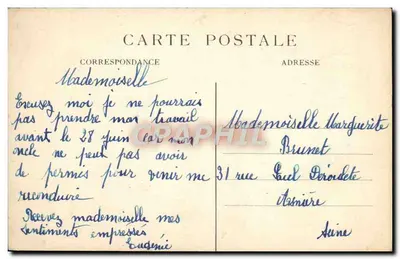 CARTE POSTALE
CORRESPONDANCE
ADRESSE
Mademoiselle
Excusez moi je ne pourrais
pas prendre mon travail
avant le 28 juin car mon
oncle ne peut pas avoir
de permes pour venir me
reconduire
Recevez mademoiselle mes
sentiments empressés
Eugénie
Mademoiselle Marguerite
Brunet
31 rue Paul Déroulète
Asnière
Seine